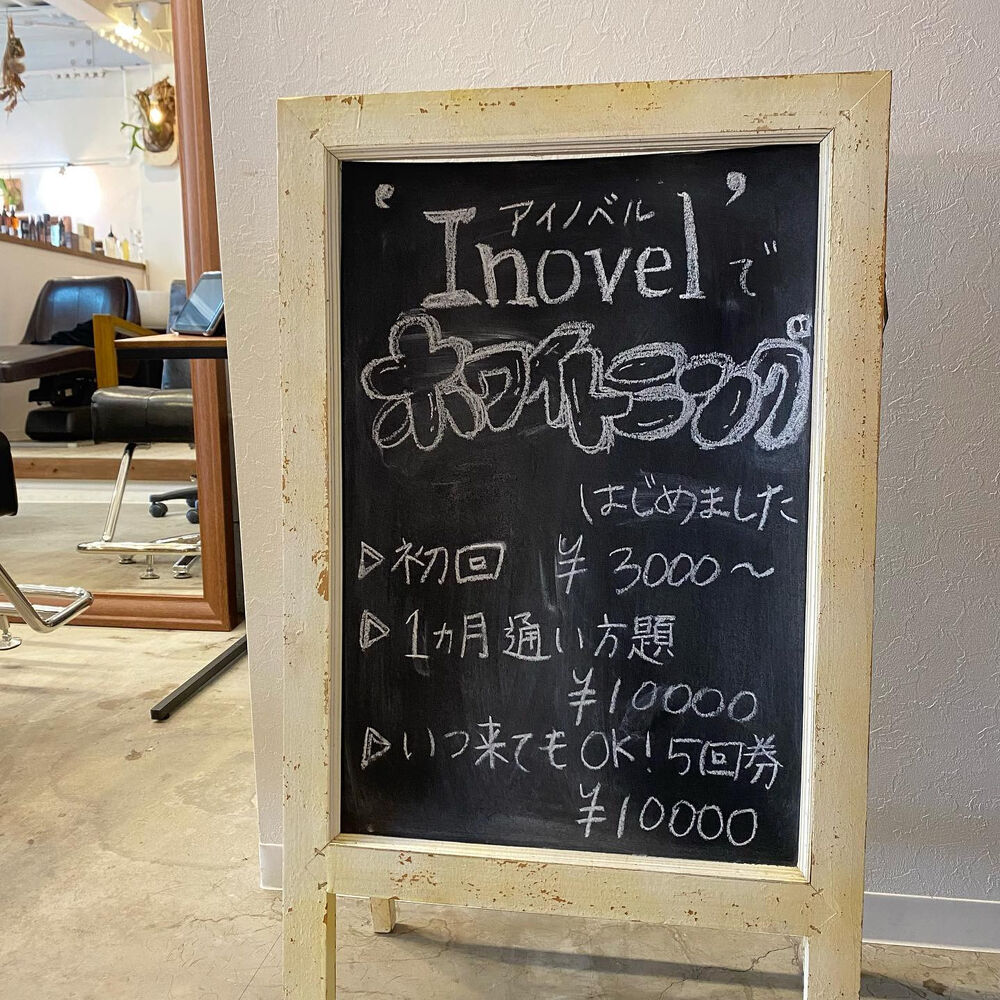 アイノベル
“Inovel”で
ホワイトニング
はじめました
▷初回 ¥3000〜
▷1ヵ月通い方題
¥10000
▷いつ来てもOK!5回券
¥10000